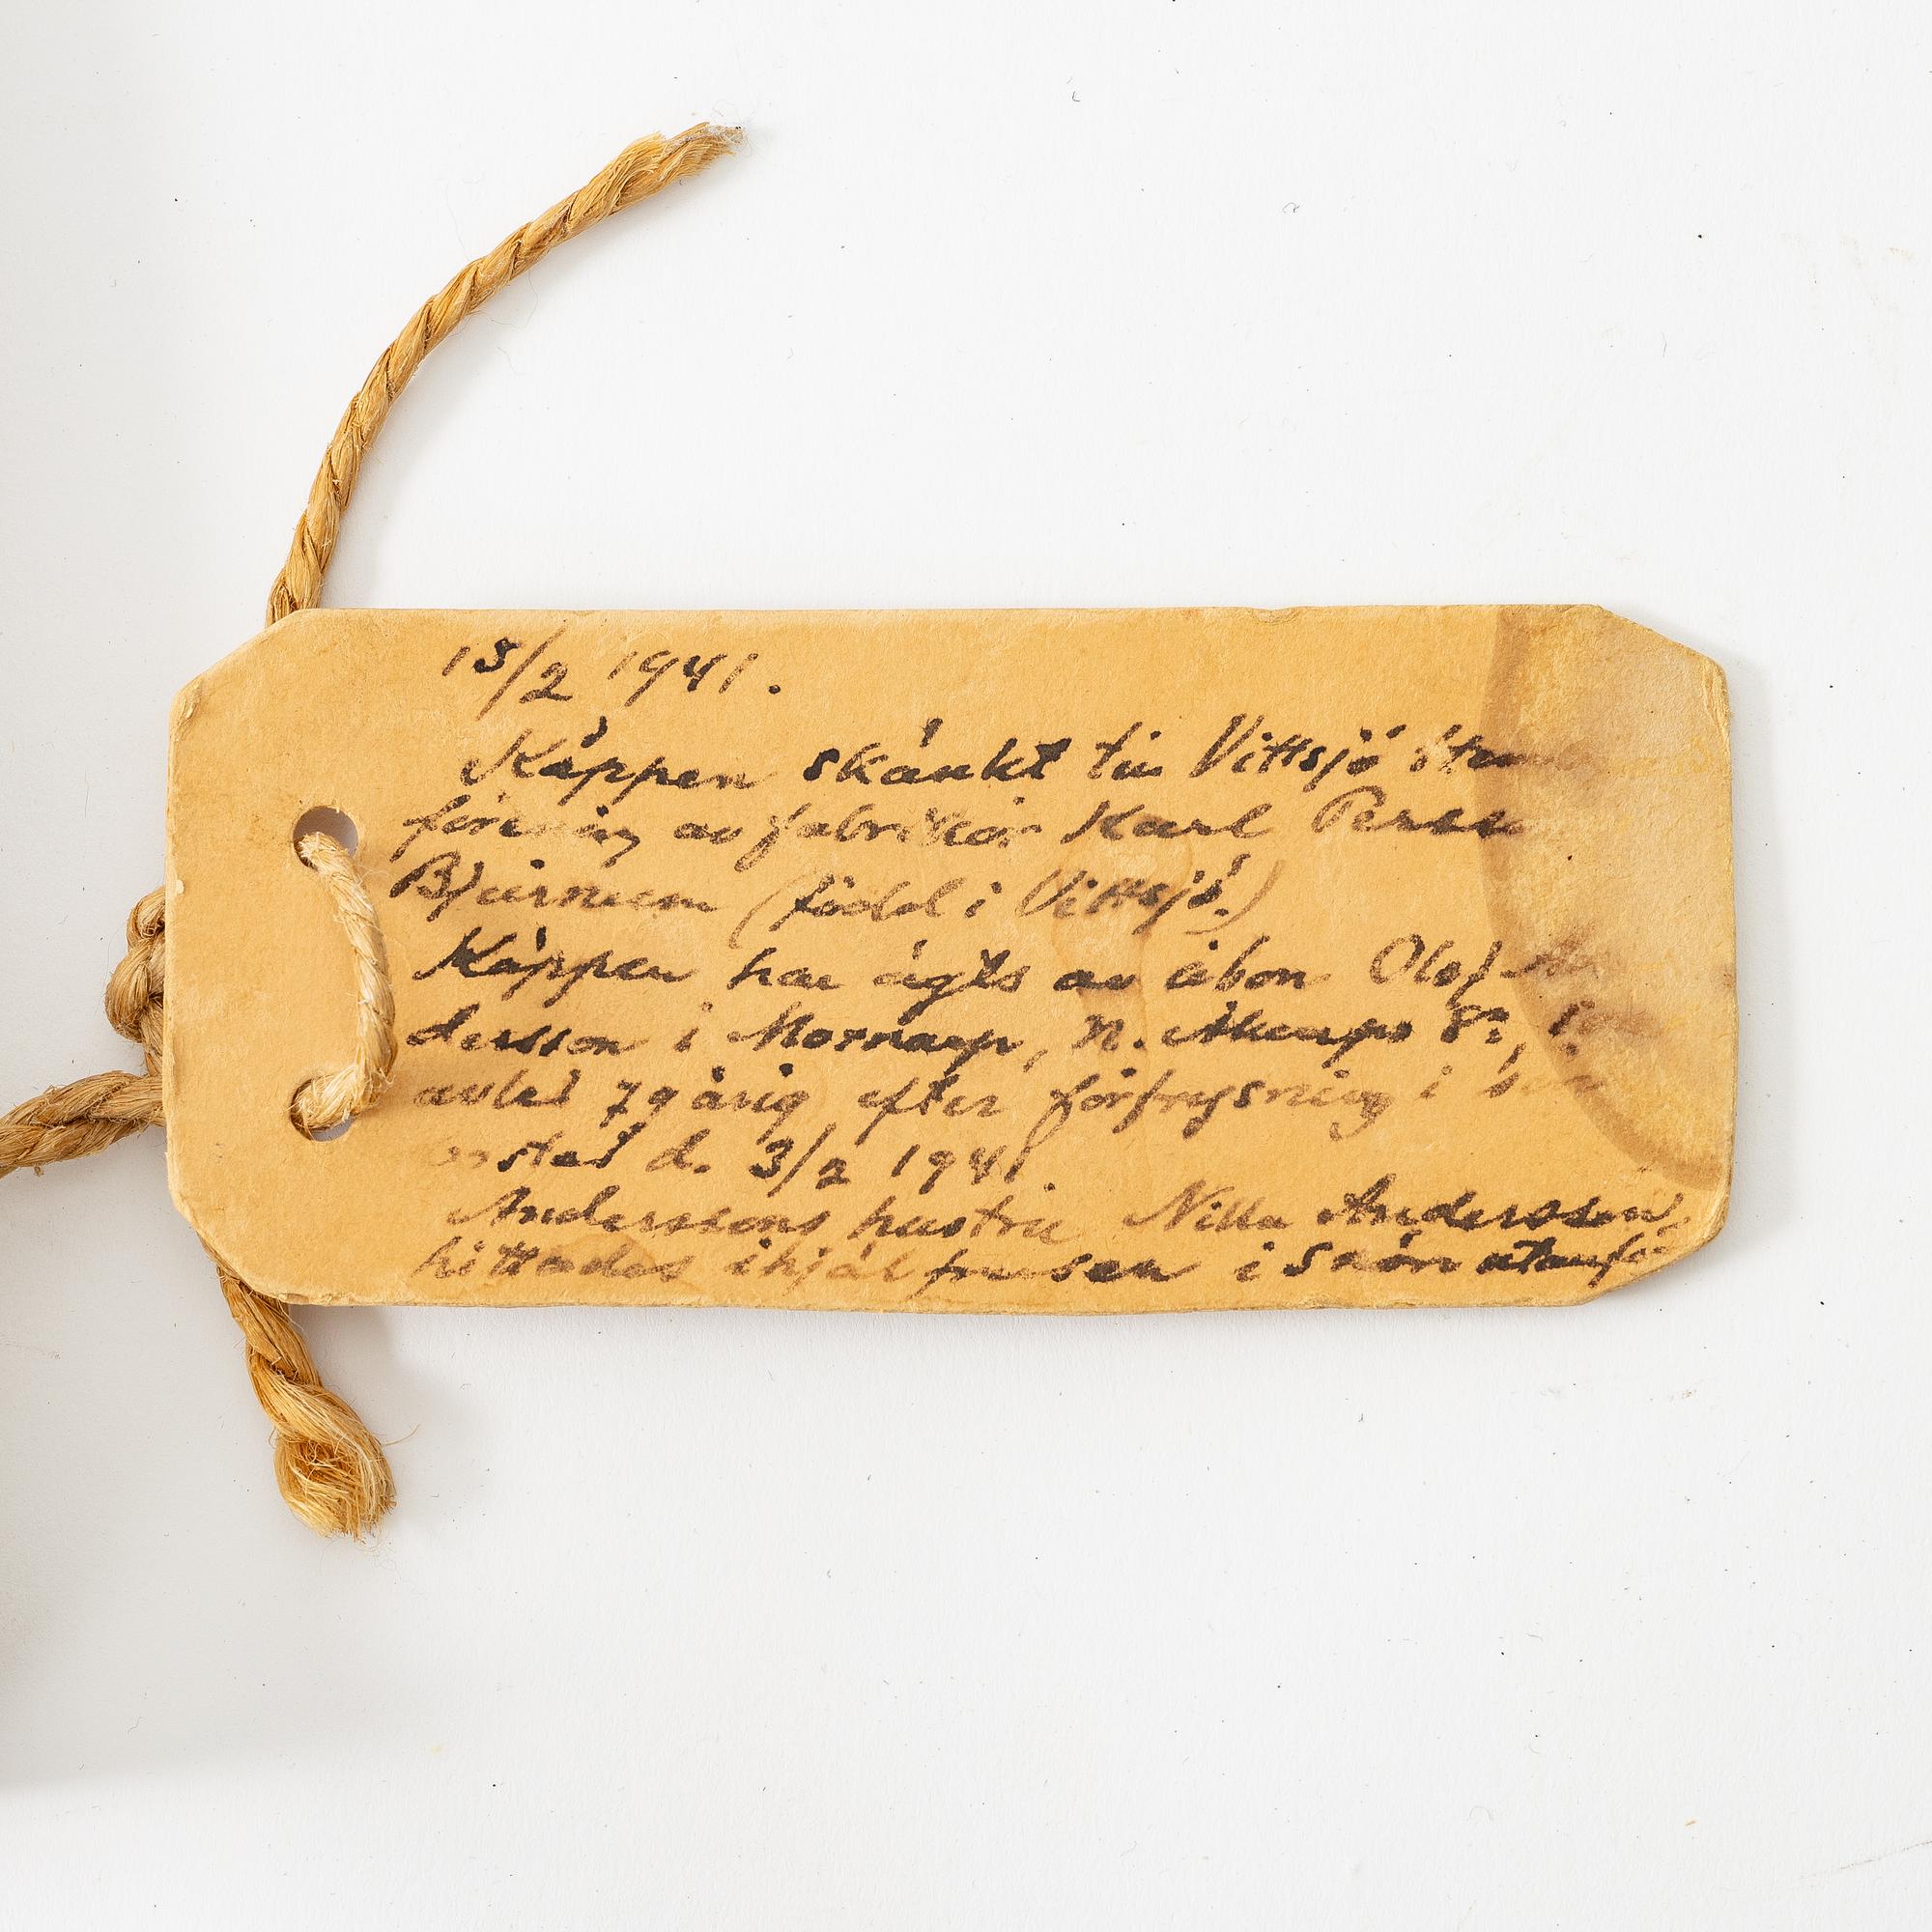 15/2 1941.
Käppen skänkt till Vittsjö
förening av fabrikör Karl Persson
Bjärnum (född i Vittsjö.)
Käppen har ägts av åbon Olof An-
dersson i Mörnarp, N. Åkarps
avled 79 årig efter förfrysning i sin
d. 3/2 1941.
Anderssons hustru Nilla Andersson
hittades ihjälfrusen i snön utanför